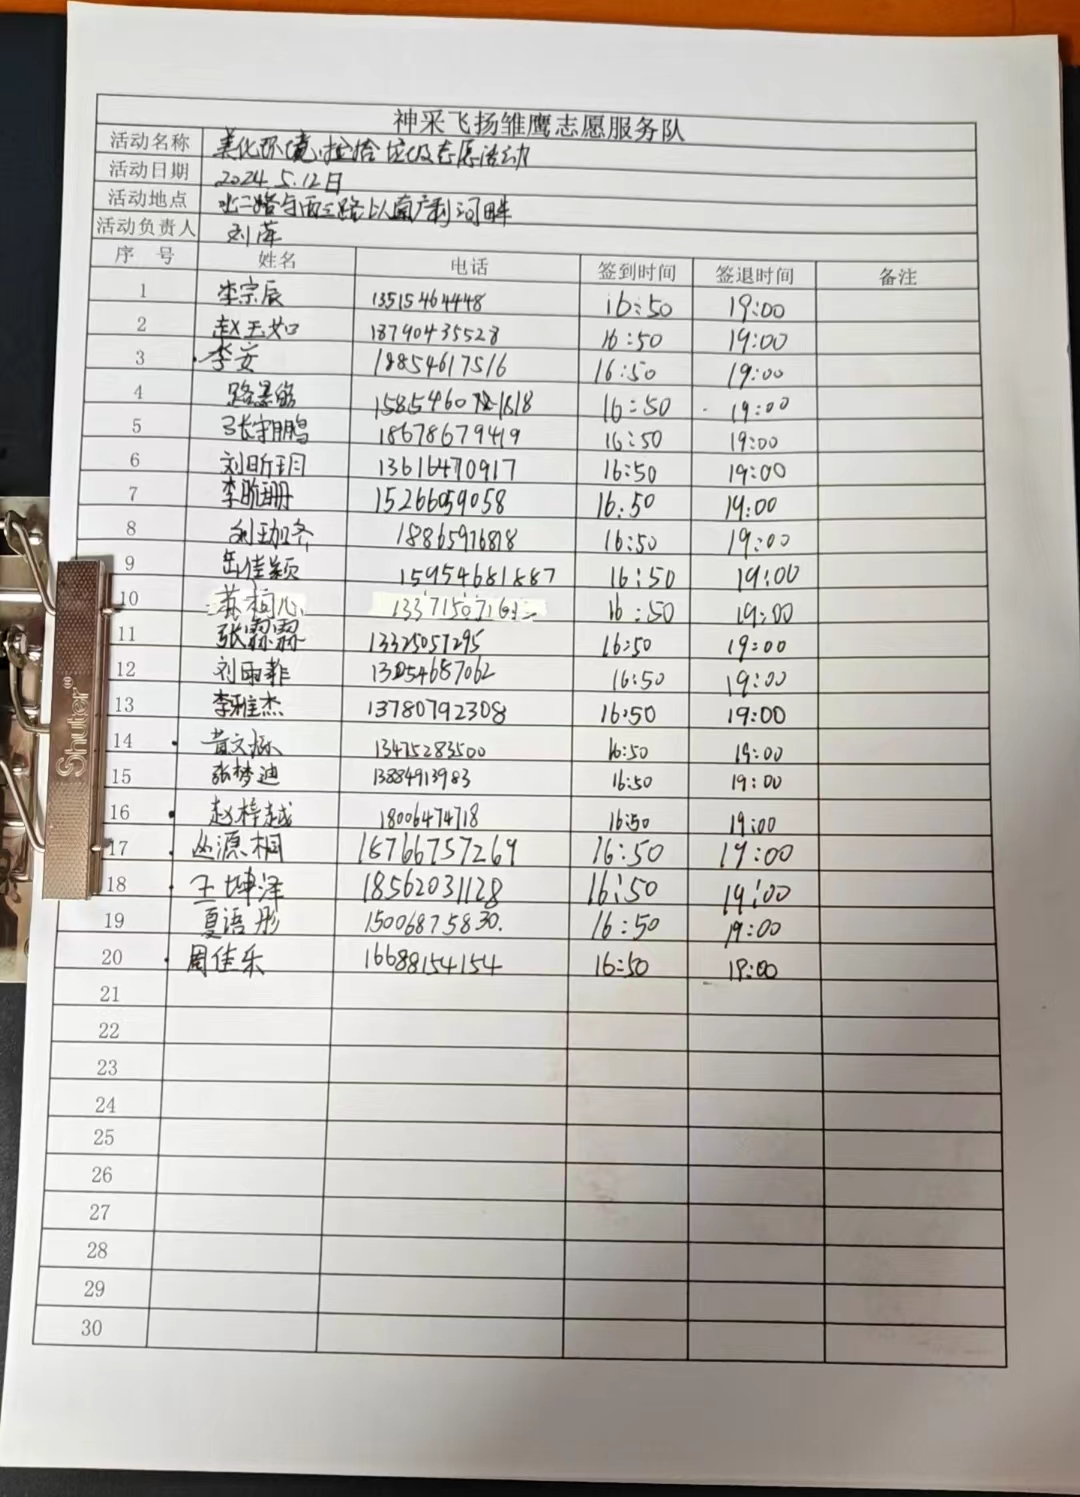 神采飞扬雏鹰志愿服务队
活动名称 美化环境,捡拾垃圾志愿活动
活动日期 2024.5.12日
活动地点 北二路与西三路以南广利河畔
活动负责人 刘萍
序 号 姓名 电话 签到时间 签退时间 备注
1 李宗辰 13515464448 16:50 19:00
2 赵玉如 18790435528 16:50 19:00
3 李安 18854617516 16:50 19:00
4 路景皓 16:50 19:00
5 张宇鹏 18678679419 16:50 19:00
6 刘昕玥 13616470917 16:50 19:00
7 李昀珊 15266059058 16:50 19:00
8 18865976818 16:50 19:00
9 岳佳颖 15954681887 16:50 19:00
10 苏柯心 16:50 19:00
11 张霖霖 13325057295 16:50 19:00
12 刘雨菲 13254687062 16:50 19:00
13 李雅杰 13780792308 16:50 19:00
14 黄文栎 13475283500 16:50 19:00
15 张梦迪 13884913983 16:50 19:00
16 赵梓越 18006474718 16:50 19:00
17 丛源桐 18766757269 16:50 19:00
18 王坤泽 18562031128 16:50 19:00
19 夏语彤 15006875830. 16:50 19:00
20 周佳乐 16688154154 16:50 19:00
21
22
23
24
25
26
27
28
29
30
Shuter®